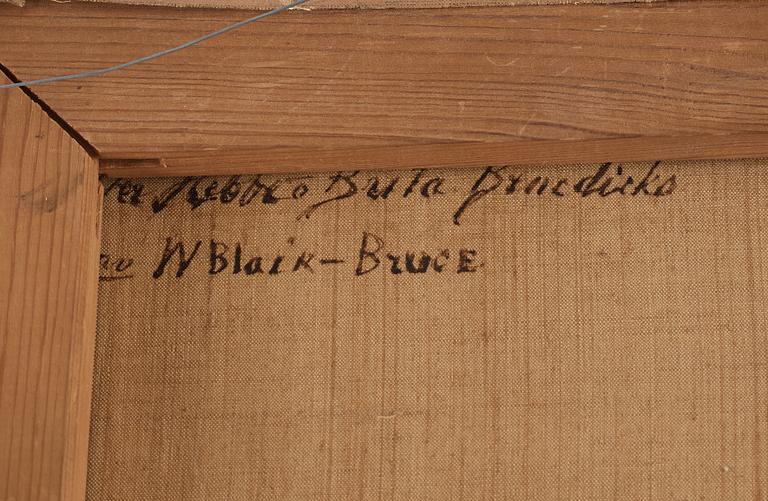 Hebbe o Brita Benedicks
av W Blair-Bruce